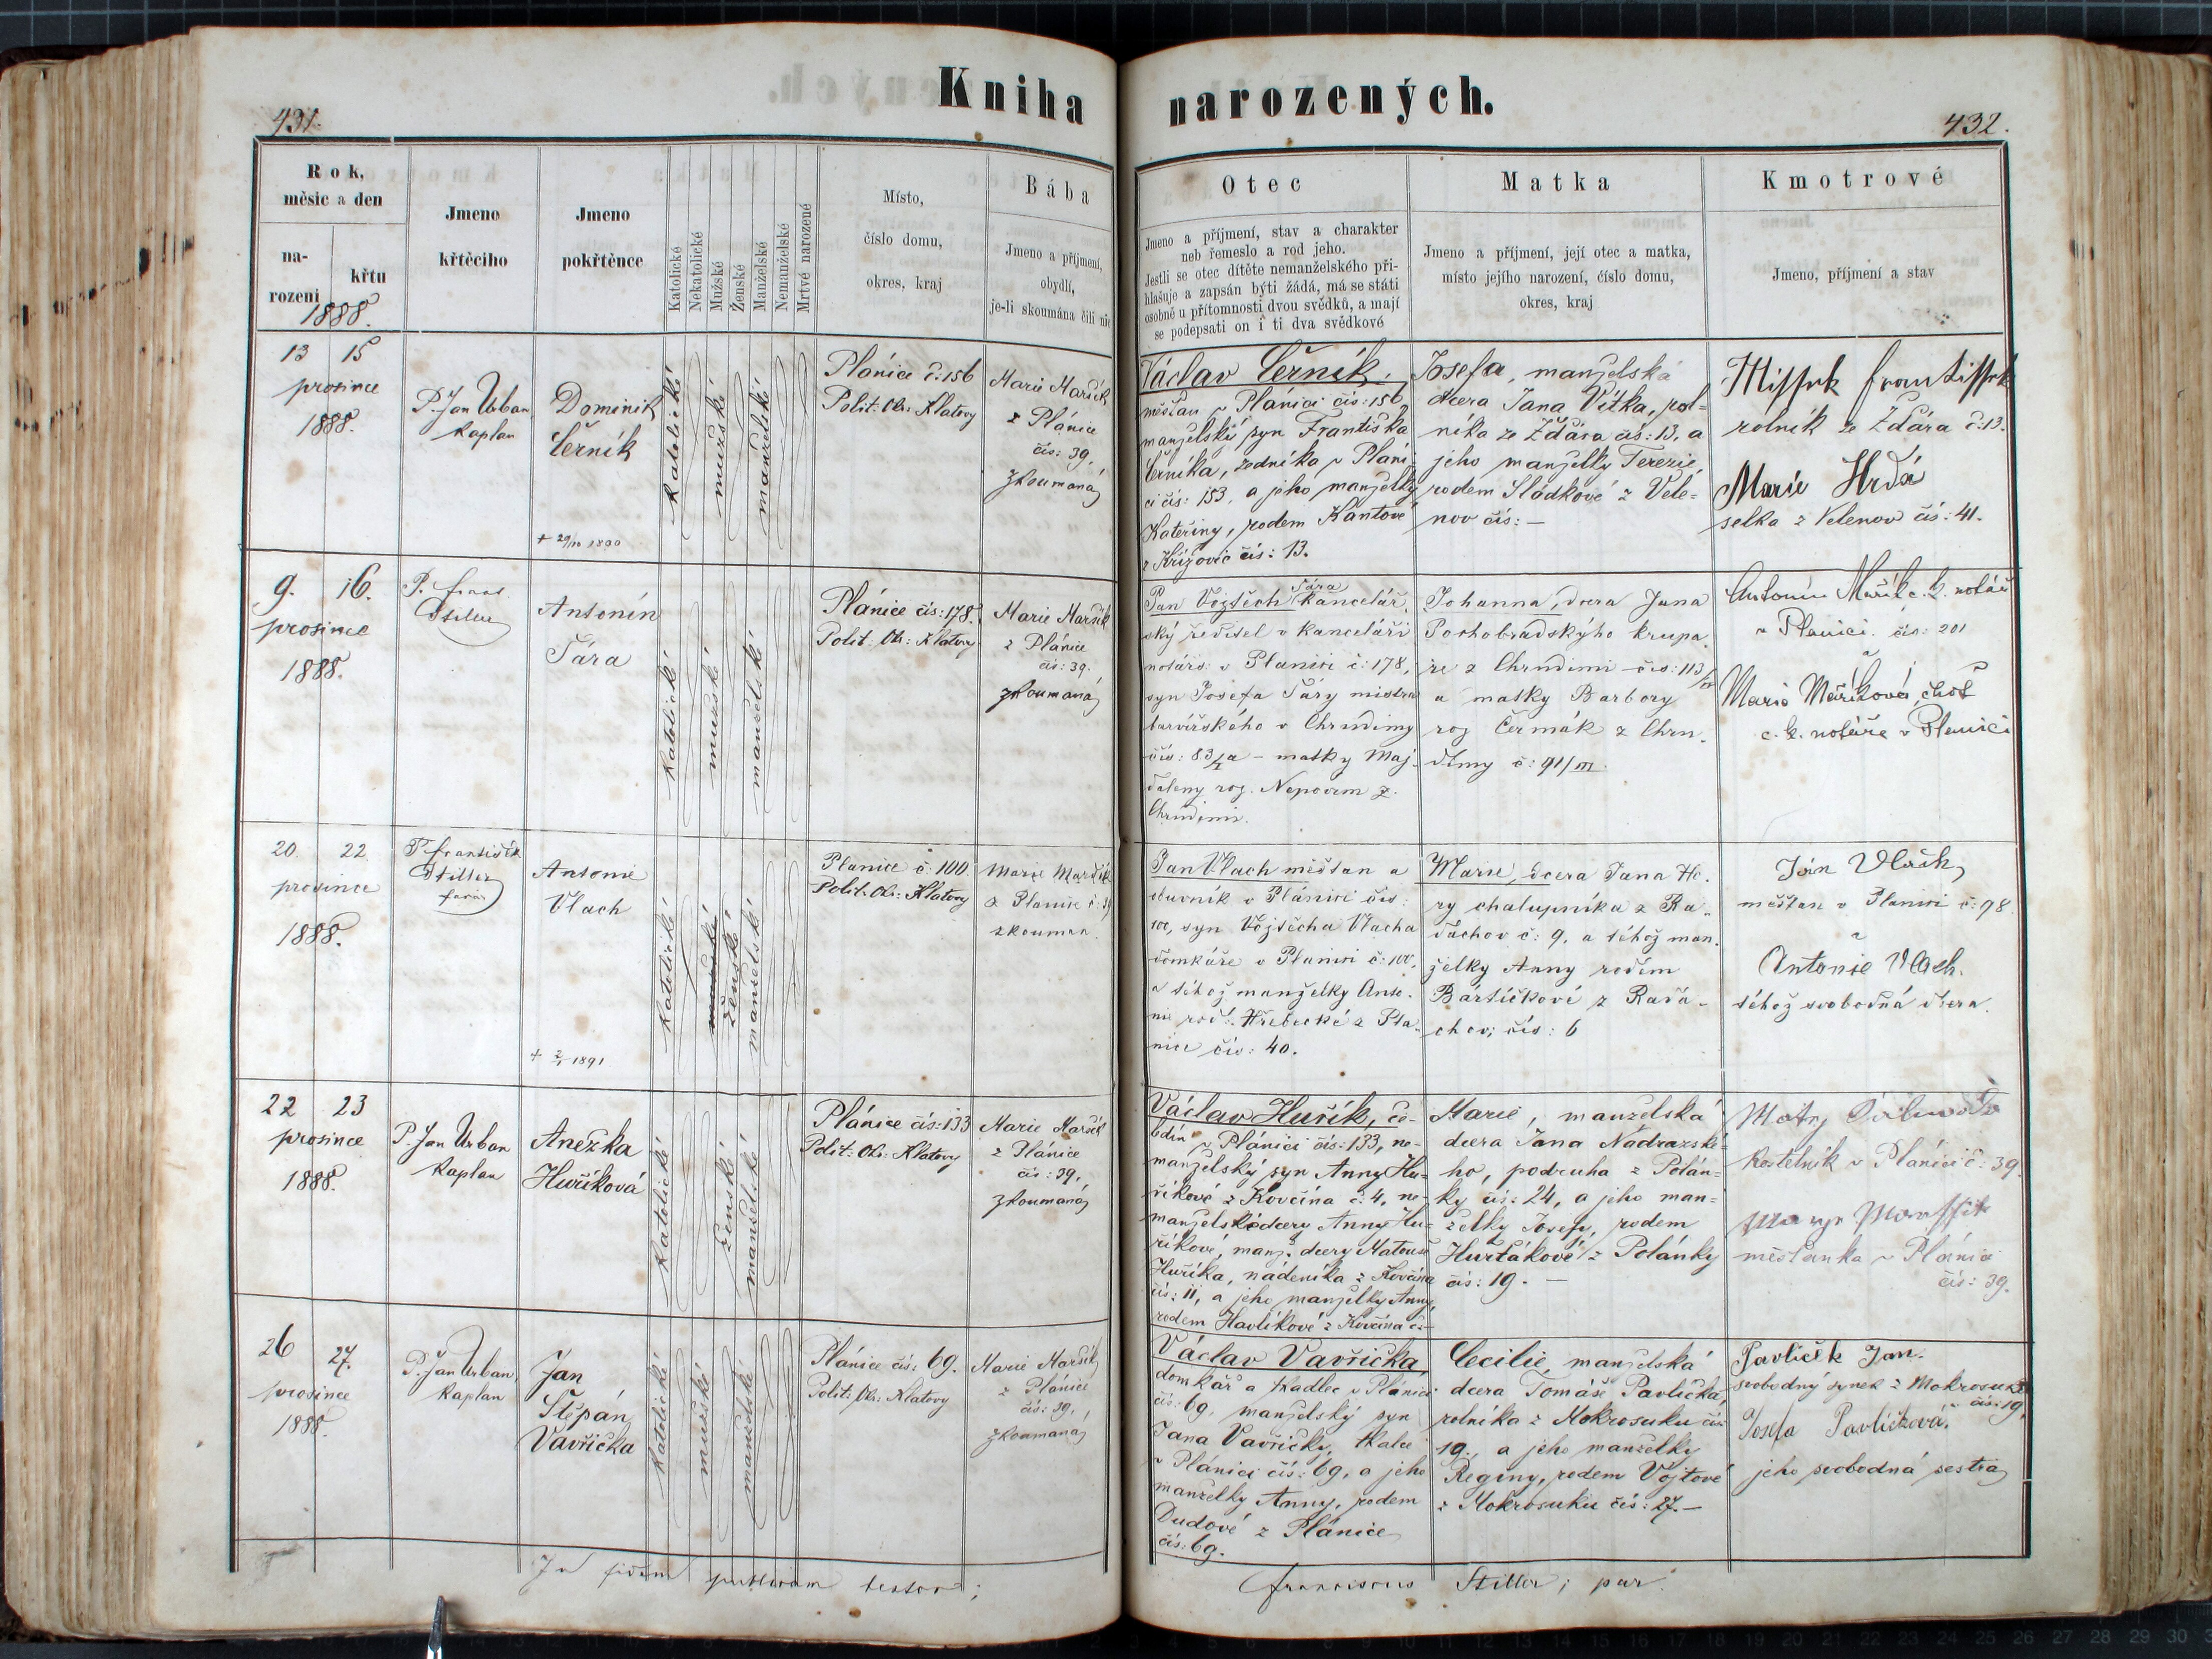 Kniha narozených.
431.
432.
Rok,
měsíc a den
na-
rození
křtu
1888.
Jmeno
křtěcího
Jmeno
pokřtěnce
Katolické
Nekatolické
Mužské
Ženské
Manželské
Nemanželské
Mrtvě narozené
Místo,
číslo domu,
okres, kraj
Bába
Jmeno a příjmení,
obydlí,
je-li skoumána čili nic
Otec
Jmeno a příjmení, stav a charakter
neb řemeslo a rod jeho.
Jestli se otec dítěte nemanželského při-
hlašuje a zapsán býti žádá, má se státi
osobně u přítomnosti dvou svědků, a mají
se podepsati on i ti dva svědkové
Matka
Jmeno a příjmení, její otec a matka,
místo jejího narození, číslo domu,
okres, kraj
Kmotrové
Jmeno, příjmení a stav
13 15
prosince
1888.
P. Jan Urban
kaplan
Dominik
Černík
katolické
mužské
manželské
Plánice č: 156
Polit: Okr: Klatovy
Marie Maršík
z Plánice
čís: 39,
zkoumaná
Václav Černík,
měšťan v Plánici čís: 156,
manželský syn Františka
Černíka, zedníka v Pláni-
ci čís: 153, a jeho manželky
Kateřiny, rodem Kantové
z Křížovic čís: 13.
Josefa, manželská
dcera Jana Vítka, rol=
níka ze Ždára čís: 13, a
jeho manželky Terezie,
rodem Sládkové z Vele=
nov čís: —
Frantissek
rolník ze Ždára č: 13.
Marie Hrdá
selka z Velenov čís: 41.
9. 16.
prosince
1888.
P. Frant.
Stiller
Antonín
Šára
katolické
mužské
manželské
Plánice čís: 178.
Polit: Okr: Klatovy
Marie Maršík
z Plánice
čís: 39.
zkoumaná
Šára
Pan Vojtěch kancelář-
ský ředitel v kanceláři
notářs: v Plánici č: 178,
syn Josefa Šáry mistra
barvířského v Chrudimy
matky Maj-
daleny roz. Nepovím z
Chrudimi.
Johanna, dcera Jana
Pochobradskýho krupa-
ře z Chrudimi čís: 113
a matky Barbory
roz Čermák z Chru-
dimy č: 91/III.
Antonín Mařík c. k. notář
v Plánici čís: 201
Marie Maříková, choť
c. k. notáře v Plánici
20. 22.
prosince
1888.
P. František
Stiller
farář
Antonie
Vlach
+ 2/1 1891
katolické
mužské
ženské
manželské
Planice č: 100.
Polit: Okr: Klatovy
Marie Maršík
z Planice č: 39
zkouman.
Jan Vlach měšťan a
v Plánici čís:
100, syn Vojtěcha Vlacha
domkáře v Planici č: 100,
a téhož manželky Anto-
nie roď: Hřebecké z Pla-
nice čís: 40.
Marie, dcera Jana Ho-
ry chalupníka z Ra-
dáchov č: 9, a téhož man-
želky Anny rodem
Bártíčkové z Radá-
chov; čís: 6
Ján Vlach
měšťan v Planici č: 98.
Antonie Vlach.
téhož svobodná dcera.
22 23
prosince
1888.
P. Jan Urban
kaplan
Anežka
Huříková
katolické
ženské
manželské
Plánice čís: 133
Polit: Okr: Klatovy
Marie Maršík
z Plánice
čís: 39,
zkoumaná
Václav Huřík, če-
ledín v Plánici čís: 133, ne-
manželský syn Anny Hu-
říkové z Kovčína č: 4, ne-
manželské dcery Anny Hu-
říkové, manž. dcery Matouše
Huříka, nádeníka z Kovčína
čís: 11, a jeho manželky Anny,
rodem Havlíkové z Kovčína č: —
Marie, manželská
dcera Jana Nádrazské-
ho, podruha z Polán-
ky čís: 24, a jeho man-
želky Josefy, rodem
Hurťákové z Polánky
čís: 19. —
kostelník v Plánici č: 39.
měšťanka v Plánici
čís: 39.
26 27.
prosince
1888.
P. Jan Urban
kaplan
Jan
Štěpán
Vavřička
katolické
mužské
manželské
Plánice čís: 69.
Polit: Okr: Klatovy
Marie Maršík
z Plánice
čís: 39,
zkoumaná
Václav Vavřička
domkář a tkadlec v Plánici
čís: 69, manželský syn
Jana Vavřičky, tkalce
v Plánici čís: 69, a jeho
manželky Anny, rodem
Dudové z Plánice
čís: 69.
Cecilie, manželská
dcera Tomáše Pavlíčka,
rolníka z Mokrosuku čís:
19., a jeho manželky
Reginy, rodem Vojtové
z Mokrosuku čís: 27. —
Pavlíček Jan.
svobodný synek z Mokrosuk
čís: 19,
Josefa Pavlíčková.
jeho svobodná sestra
In fidem publicam testor;
Franciscus Stiller; par.